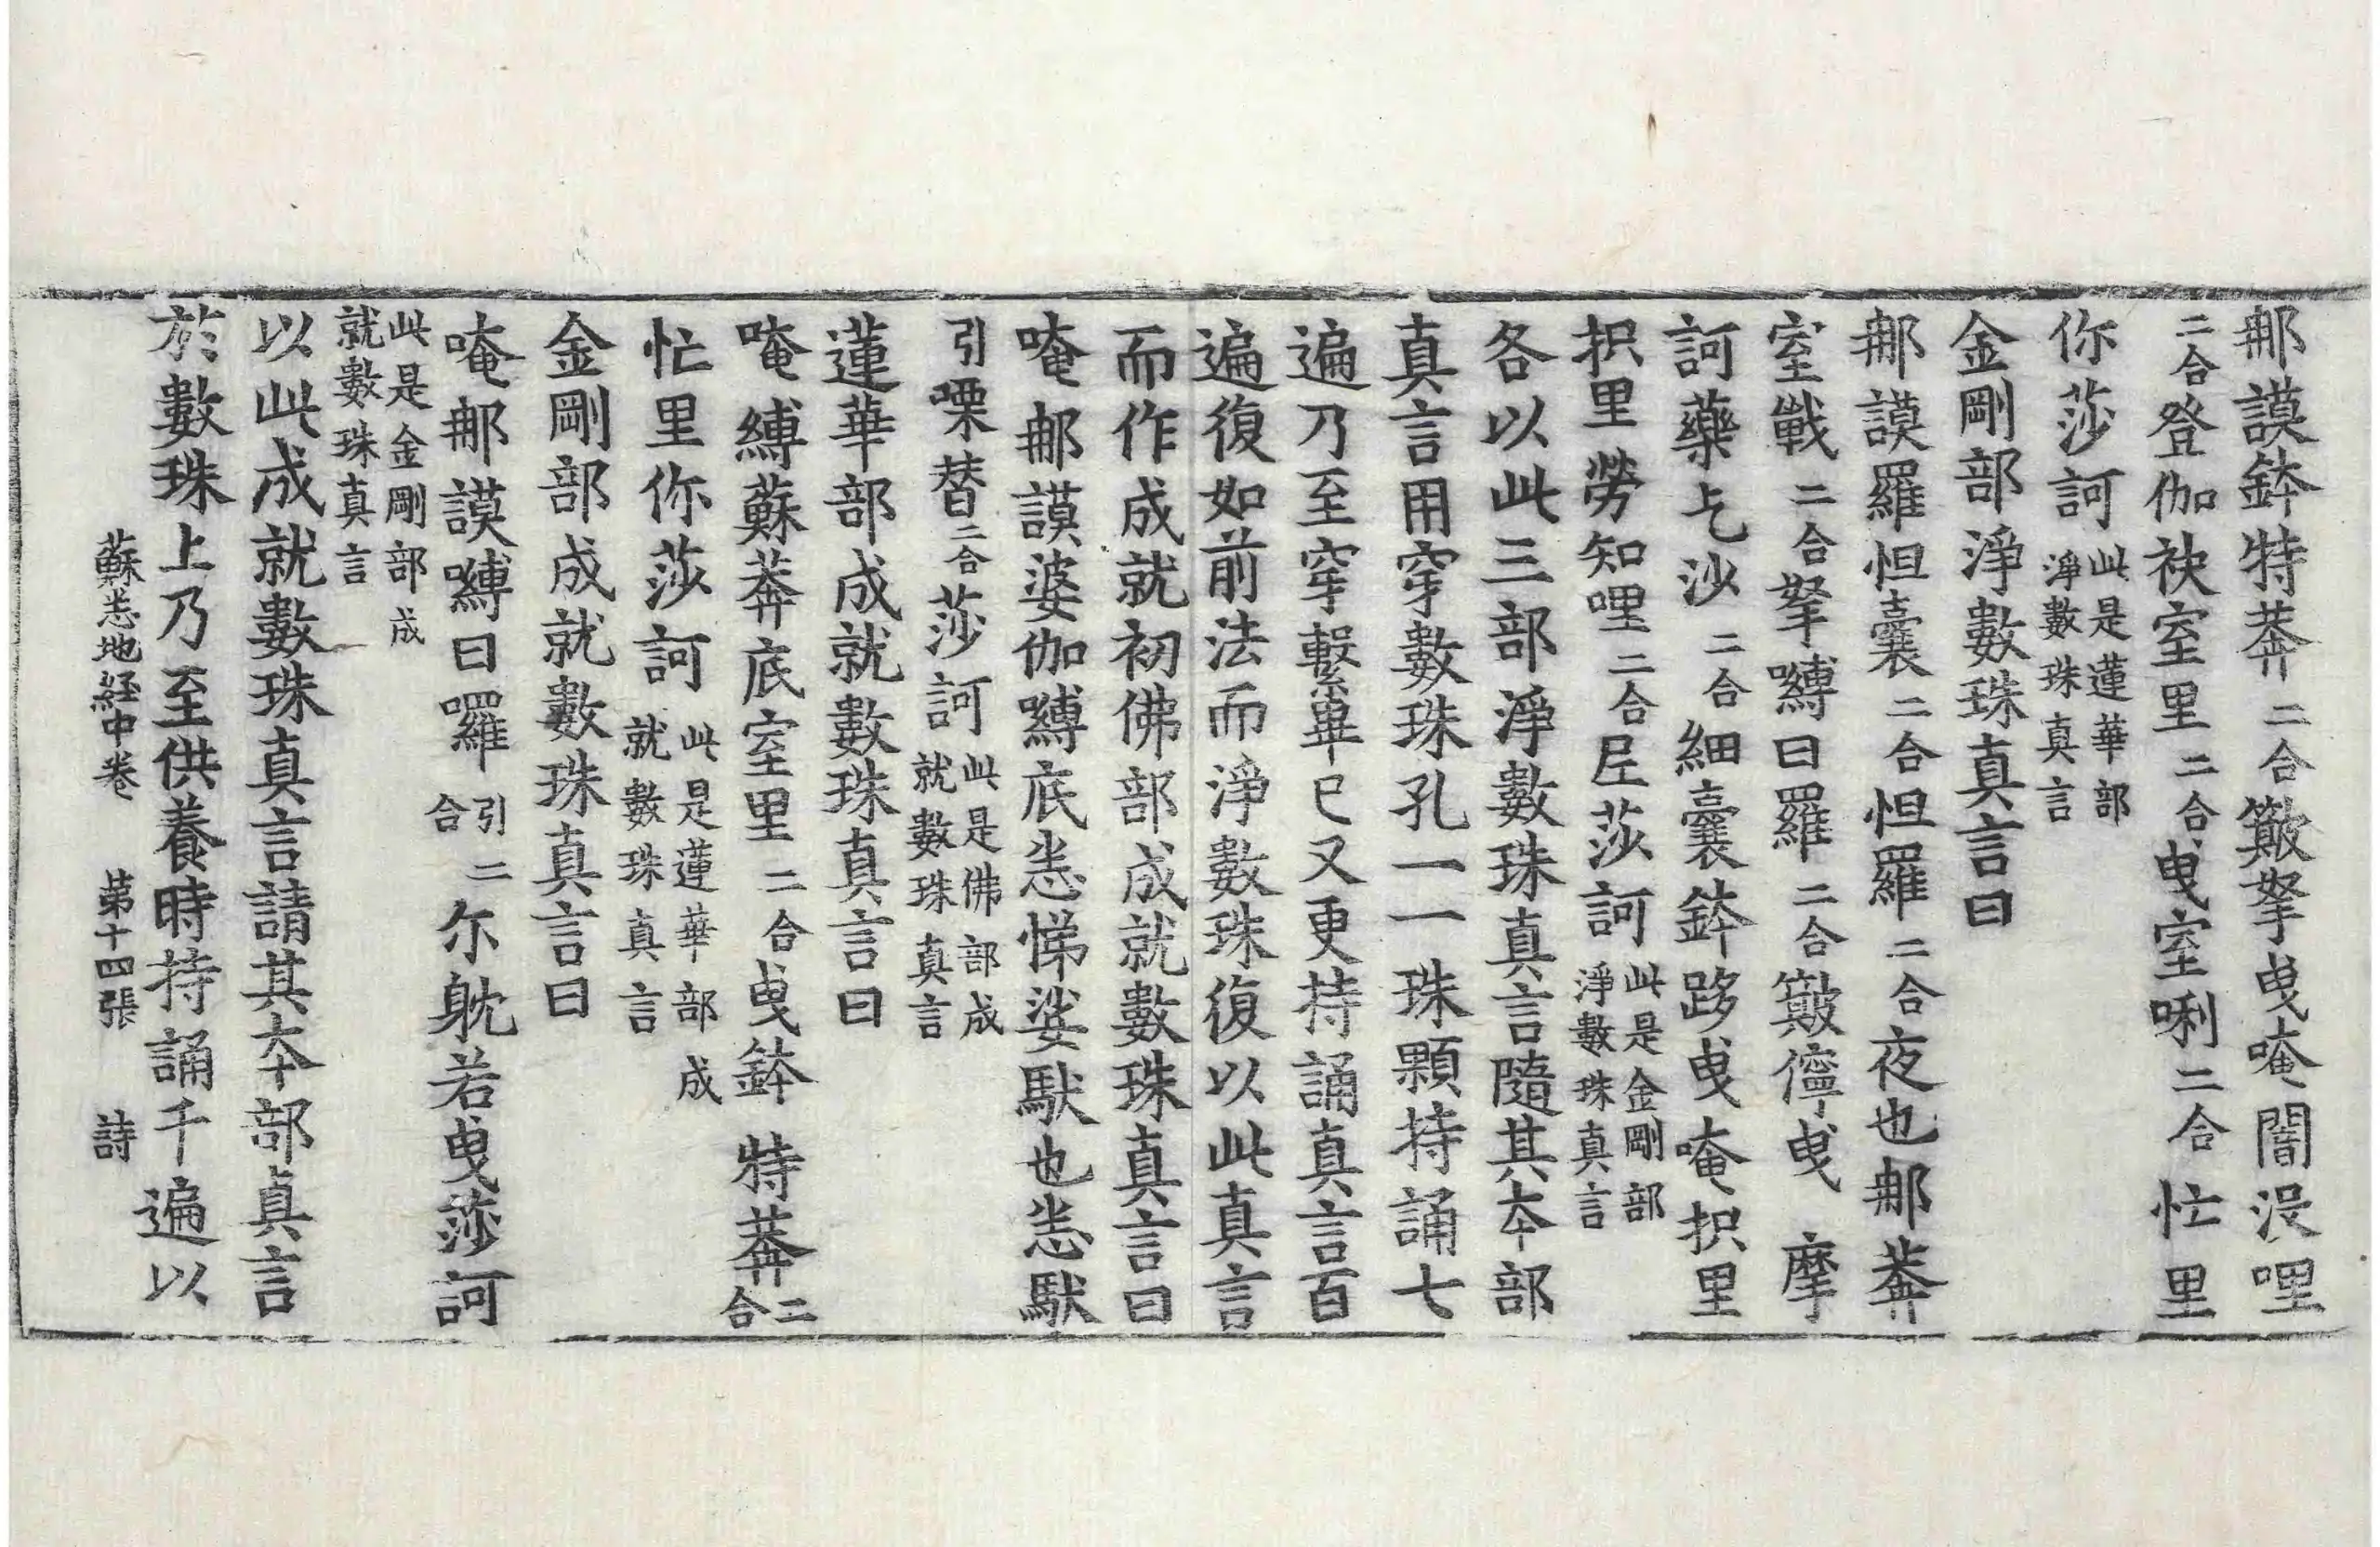 那謨鉢特莽二合簸拏曳唵闇没哩
二合登伽袂室里二合曳室唎二合忙里
你莎訶此是蓮華部淨數珠真言
金剛部淨數珠真言曰
那謨羅怛囊二合怛羅二合夜也那莽
室戰二合拏嚩曰羅二合簸儜曳摩
訶藥乞沙二合細囊鉢跢曳唵抧里
抧里勞知哩二合㞐莎訶此是金剛部淨數珠真言
各以此三部淨數珠真言隨其本部
真言用穿數珠孔一一珠顆持誦七
遍乃至穿繫畢已又更持誦真言百
遍復如前法而淨數珠復以此真言
而作成就初佛部成就數珠真言曰
唵那謨婆伽嚩底悉悌娑馱也悉馱
引㗚替二合莎訶此是佛部成就數珠真言
蓮華部成就數珠真言曰
唵縛蘇莽底室里二合曳鉢特莽二合
忙里你莎訶此是蓮華部成就數珠真言
金剛部成就數珠真言曰
唵那謨嚩曰囉引二合尔躭若曳莎訶
此是金剛部成就數珠真言
以此成就數珠真言請其本部真言
於數珠上乃至供養時持誦千遍以
蘇悉地経中卷 第十四張 詩